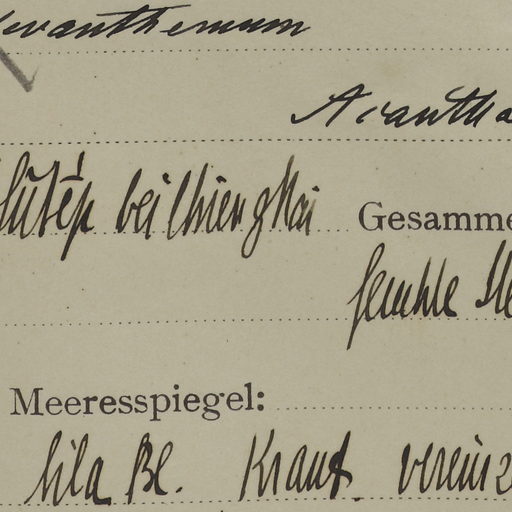 eranthemum
Acantha
Sutēp bei Chieng Mai Gesamme
feuchte Ste
Meeresspiegel:
lila Bl. Kraut. vereinz